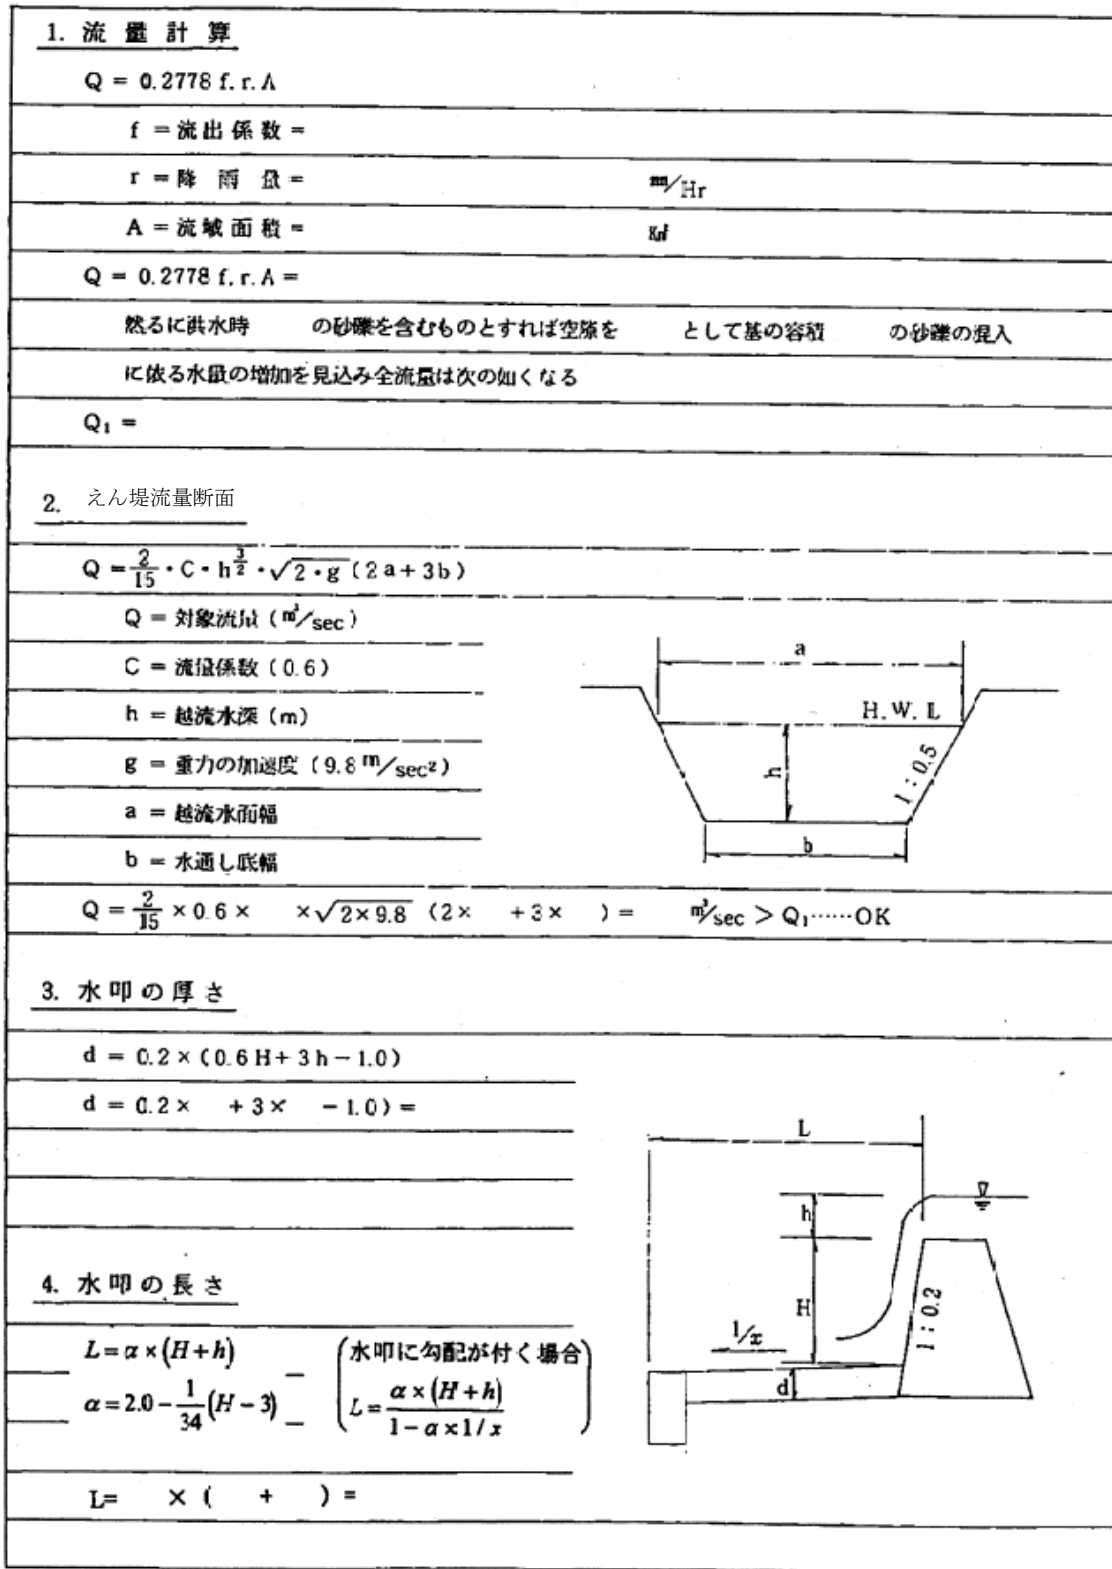 1. 流量計算
Q = 0.2778 f. r. A
f = 流出係数 =
r = 降雨量 = mm/Hr
A = 流域面積 = K㎡
Q = 0.2778 f. r. A =
然るに洪水時 の砂礫を含むものとすれば空隙を として基の容積 の砂礫の混入
に依る水量の増加を見込み全流量は次の如くなる
Q₁ =
2. えん堤流量断面
Q = 2/15 · C · h^(3/2) · √(2・g) (2a + 3b)
Q = 対象流量 (m³/sec)
C = 流量係数 (0.6)
h = 越流水深 (m)
g = 重力の加速度 (9.8 m/sec²)
a = 越流水面幅
b = 水通し底幅
a
H. W. L
h
1 : 0.5
b
Q = 2/15 × 0.6 × × √(2×9.8) (2× +3× ) = m³/sec > Q₁……OK
3. 水叩の厚さ
d = 0.2 × (0.6H + 3h − 1.0)
d = 0.2 × + 3 × − 1.0) =
4. 水叩の長さ
L = α × (H + h)
α = 2.0 − 1/34 (H − 3)
(水叩に勾配が付く場合
L = α × (H + h) / 1 − α × 1/x)
L= × ( + ) =
L
h
H
1 : 0.2
1/x
d